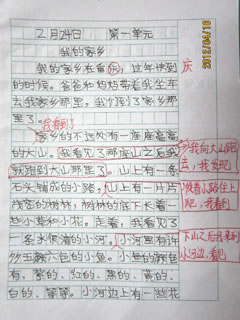 2月24日 第一单元
我的家乡
我的家乡在重庆,过年快到
庆
的时候。爸爸和妈妈带着我坐车
去我家那里。我们到了家乡那
里了。我看到了
家乡的不远处有一座座高高
的大山。我看见了那座山之后我
我向大山跑
去,我发现
我跑到大山那里了。山上有一条
石头铺成的小路。山上有一片片
我顺着小路往上
爬,我看到
茂密的树林,树林的底下长着一
些小草和小花。走着,我看见了
一条水很清的小河。小河里有许
下山之后我来到
小河边,看见
多五颜六色的小鱼。小鱼的颜色
有,黎的、红的、黑的、黄的、
白的、等等。小河边上有一些花
2012/04/10